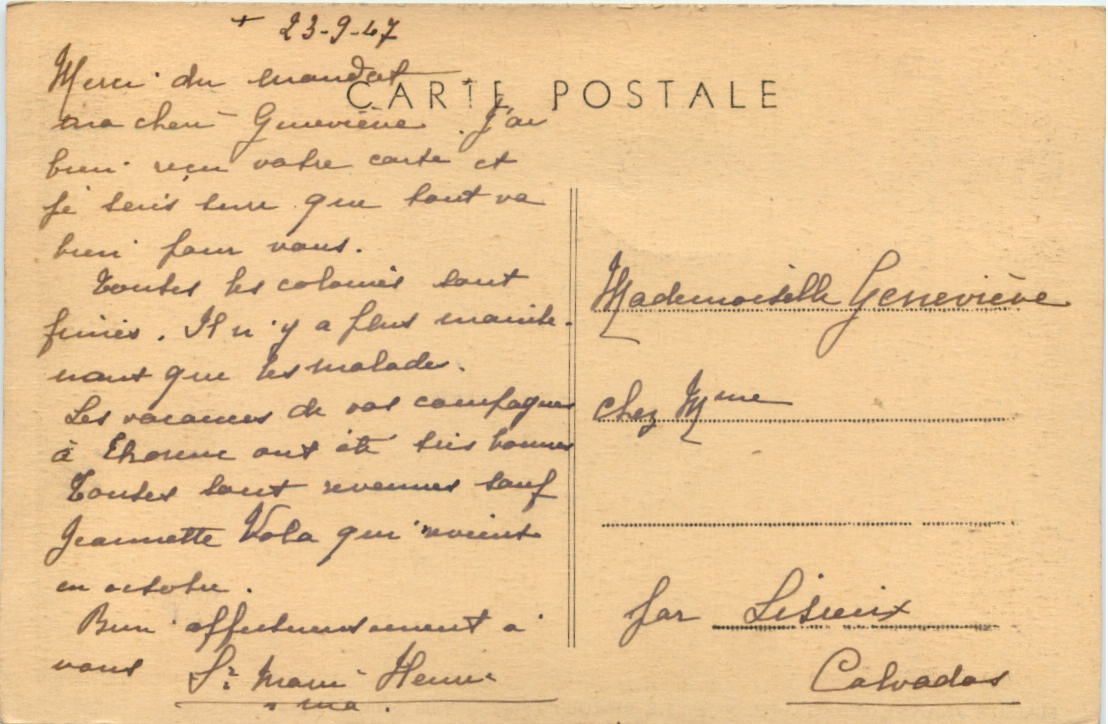 + 23-9-47
CARTE POSTALE
Merci du mandat
ma chère Geneviève. J'ai
bien reçu votre carte et
je suis sure que tout va
bien pour vous.
Toutes les colonies sont
finies. Il n'y a plus mainte-
nant que les malades.
Les vacances de vos compagnes
à ont été très bonnes
Toutes sont revenues sauf
Jeannette Vola qui revient
en octobre.
Bien affectueusement à
vous Sr Marie Henri
Mademoiselle Geneviève
chez Mme
par Lisieux
Calvados